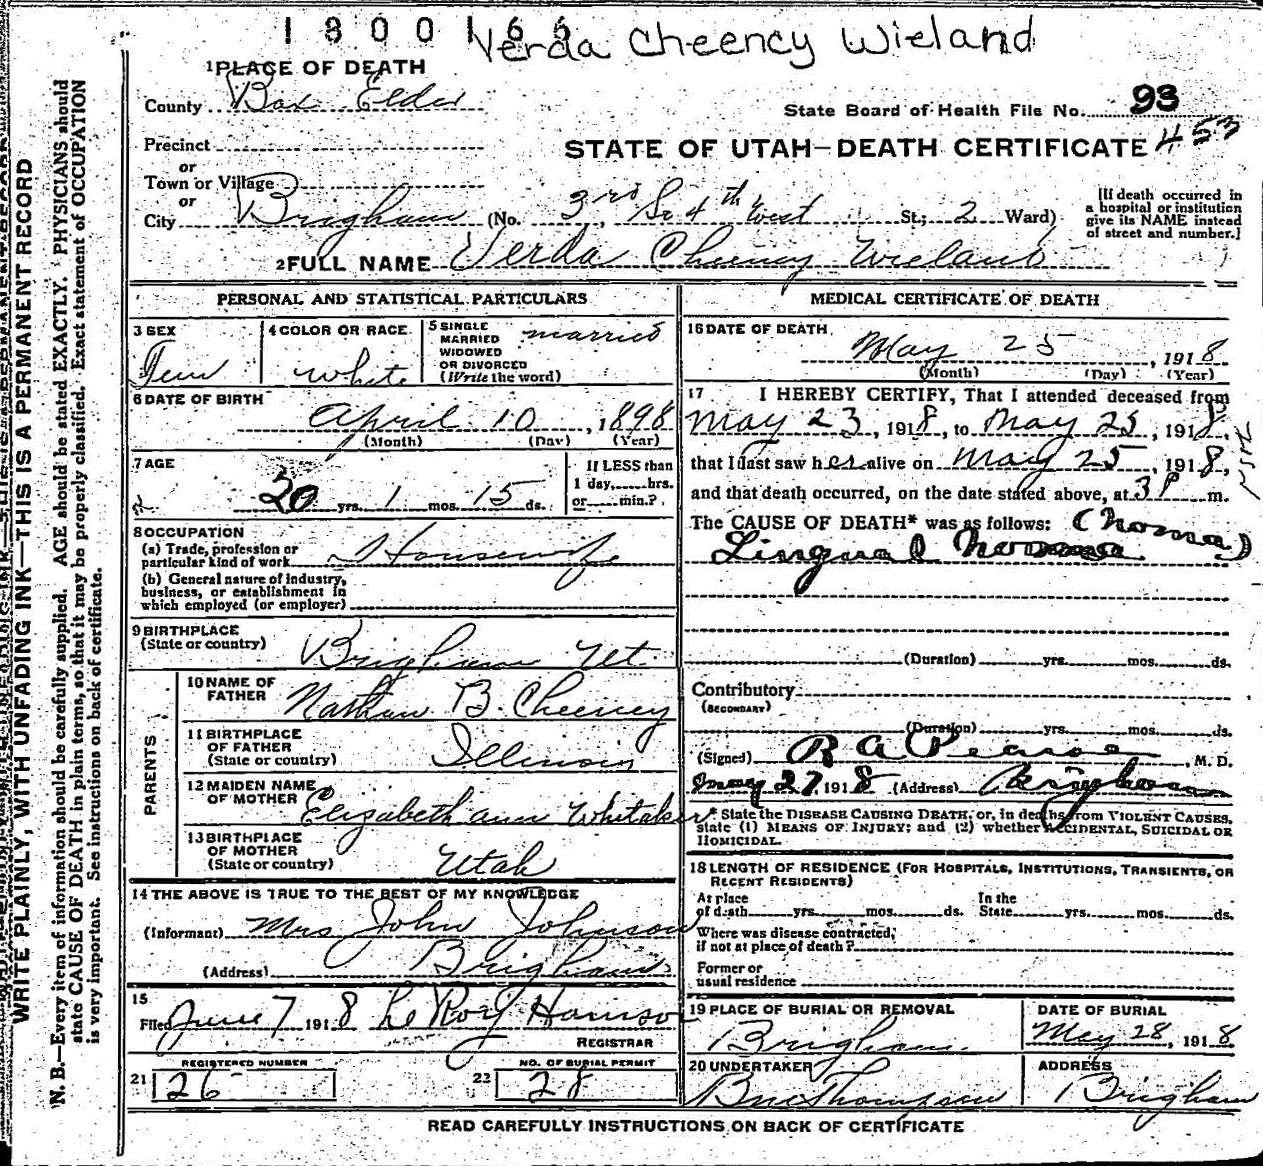 1800166
Verda Cheency Wieland
1 PLACE OF DEATH
County Box Elder
State Board of Health File No. 93
Precinct
453
STATE OF UTAH—DEATH CERTIFICATE
or
Town or Village
or
City Brigham (No. 3rd So 4th West St.; 2 Ward)
[If death occurred in
a hospital or institution
give its NAME instead
of street and number.]
2 FULL NAME Verda Cheeney Wieland
PERSONAL AND STATISTICAL PARTICULARS
3 SEX
Fem
4 COLOR OR RACE
white
5 SINGLE
MARRIED
WIDOWED
OR DIVORCED
(Write the word)
married
6 DATE OF BIRTH
April 10, 1898
(Month) (Day) (Year)
7 AGE
20 yrs. 1 mos. 15 ds.
If LESS than
1 day,......hrs.
or......min.?
8 OCCUPATION
(a) Trade, profession or
particular kind of work Housewife
(b) General nature of industry,
business, or establishment in
which employed (or employer)
9 BIRTHPLACE
(State or country)
Brigham Ut.
PARENTS
10 NAME OF
FATHER
Nathan B. Cheeney
11 BIRTHPLACE
OF FATHER
(State or country)
Illinois
12 MAIDEN NAME
OF MOTHER
Elizabeth ann Whitaker
13 BIRTHPLACE
OF MOTHER
(State or country)
Utah
14 THE ABOVE IS TRUE TO THE BEST OF MY KNOWLEDGE
(Informant) Mrs John Johnson
(Address) Brigham
15
Filed June 7 1918 Le Roy
REGISTRAR
REGISTERED NUMBER
21 26
NO. OF BURIAL PERMIT
22 28
MEDICAL CERTIFICATE OF DEATH
16 DATE OF DEATH
May 25, 1918
(Month) (Day) (Year)
17 I HEREBY CERTIFY, That I attended deceased from
May 23, 1918, to May 25, 1918,
that I last saw her alive on May 25, 1918,
and that death occurred, on the date stated above, at 3 P m.
The CAUSE OF DEATH* was as follows:
(Duration) yrs. mos. ds.
Contributory
(SECONDARY)
(Duration) yrs. mos. ds.
(Signed) R A Pearse, M. D.
May 27, 1918 (Address) Brigham
* State the DISEASE CAUSING DEATH, or, in deaths from VIOLENT CAUSES,
state (1) MEANS OF INJURY; and (2) whether ACCIDENTAL, SUICIDAL OR
HOMICIDAL.
18 LENGTH OF RESIDENCE (FOR HOSPITALS, INSTITUTIONS, TRANSIENTS, OR
RECENT RESIDENTS)
At place
of death yrs. mos. ds.
In the
State yrs. mos. ds.
Where was disease contracted,
if not at place of death?
Former or
usual residence
19 PLACE OF BURIAL OR REMOVAL
Brigham.
DATE OF BURIAL
May 28, 1918
20 UNDERTAKER
Thompson
ADDRESS
Brigham
READ CAREFULLY INSTRUCTIONS ON BACK OF CERTIFICATE
WRITE PLAINLY, WITH UNFADING INK—THIS IS A PERMANENT RECORD
N. B.—Every item of information should be carefully supplied. AGE should be stated EXACTLY. PHYSICIANS should
state CAUSE OF DEATH in plain terms, so that it may be properly classified. Exact statement of OCCUPATION
is very important. See instructions on back of certificate.